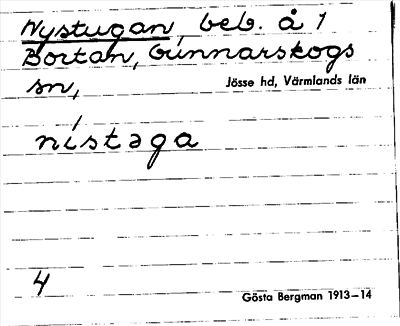 Nystugan, beb. å 1
Bortan, Gunnarskogs
sn,
Jösse hd, Värmlands län
nístəga
4
Gösta Bergman 1913–14